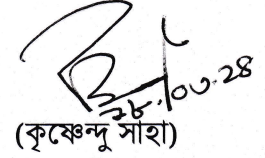 ২৮.।০৩.২৪
(কৃষ্ণেন্দু সাহা)